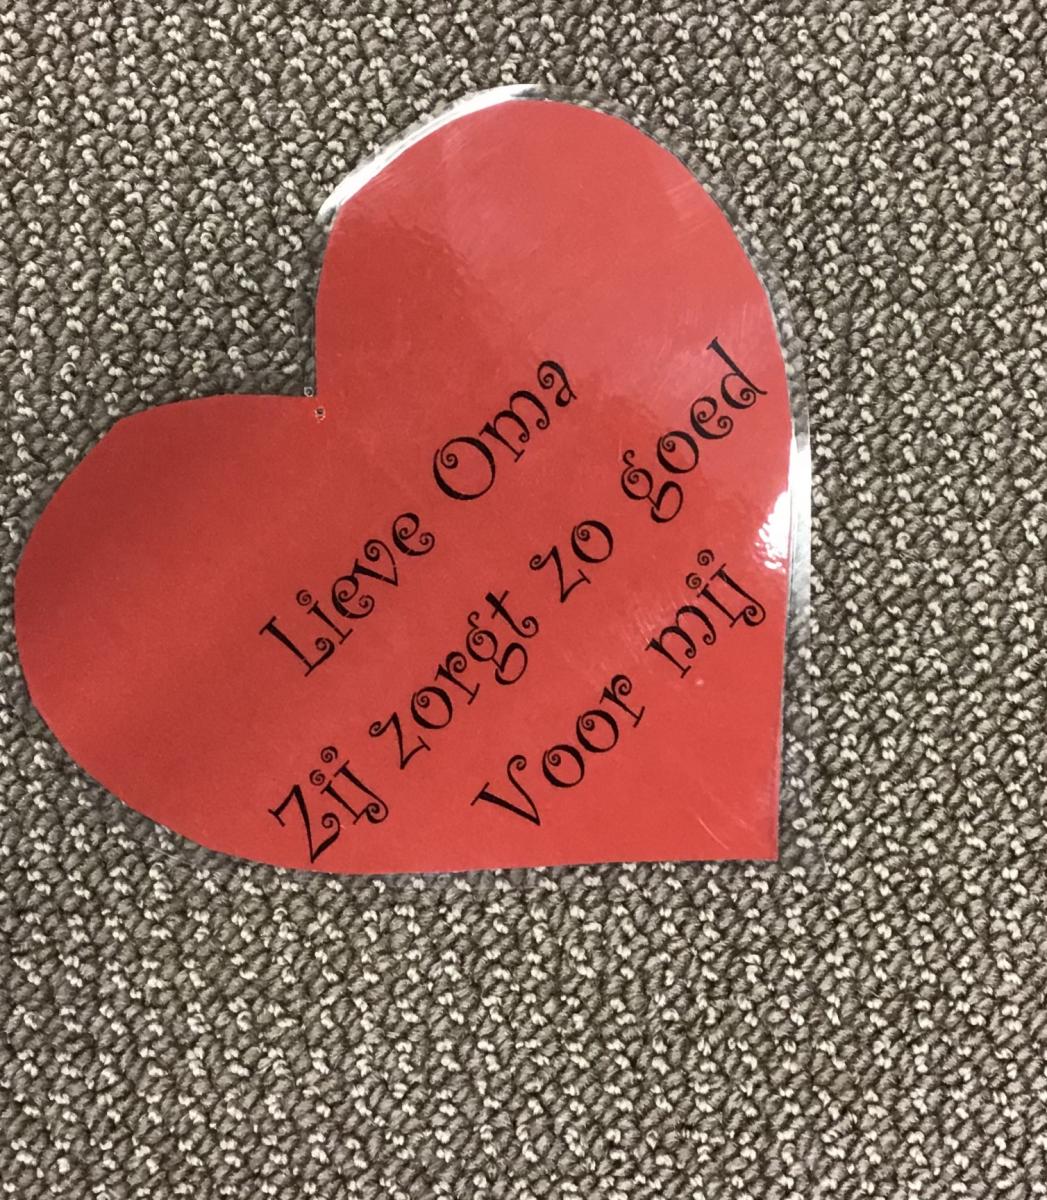 Lieve Oma
Zij zorgt zo goed
Voor mij